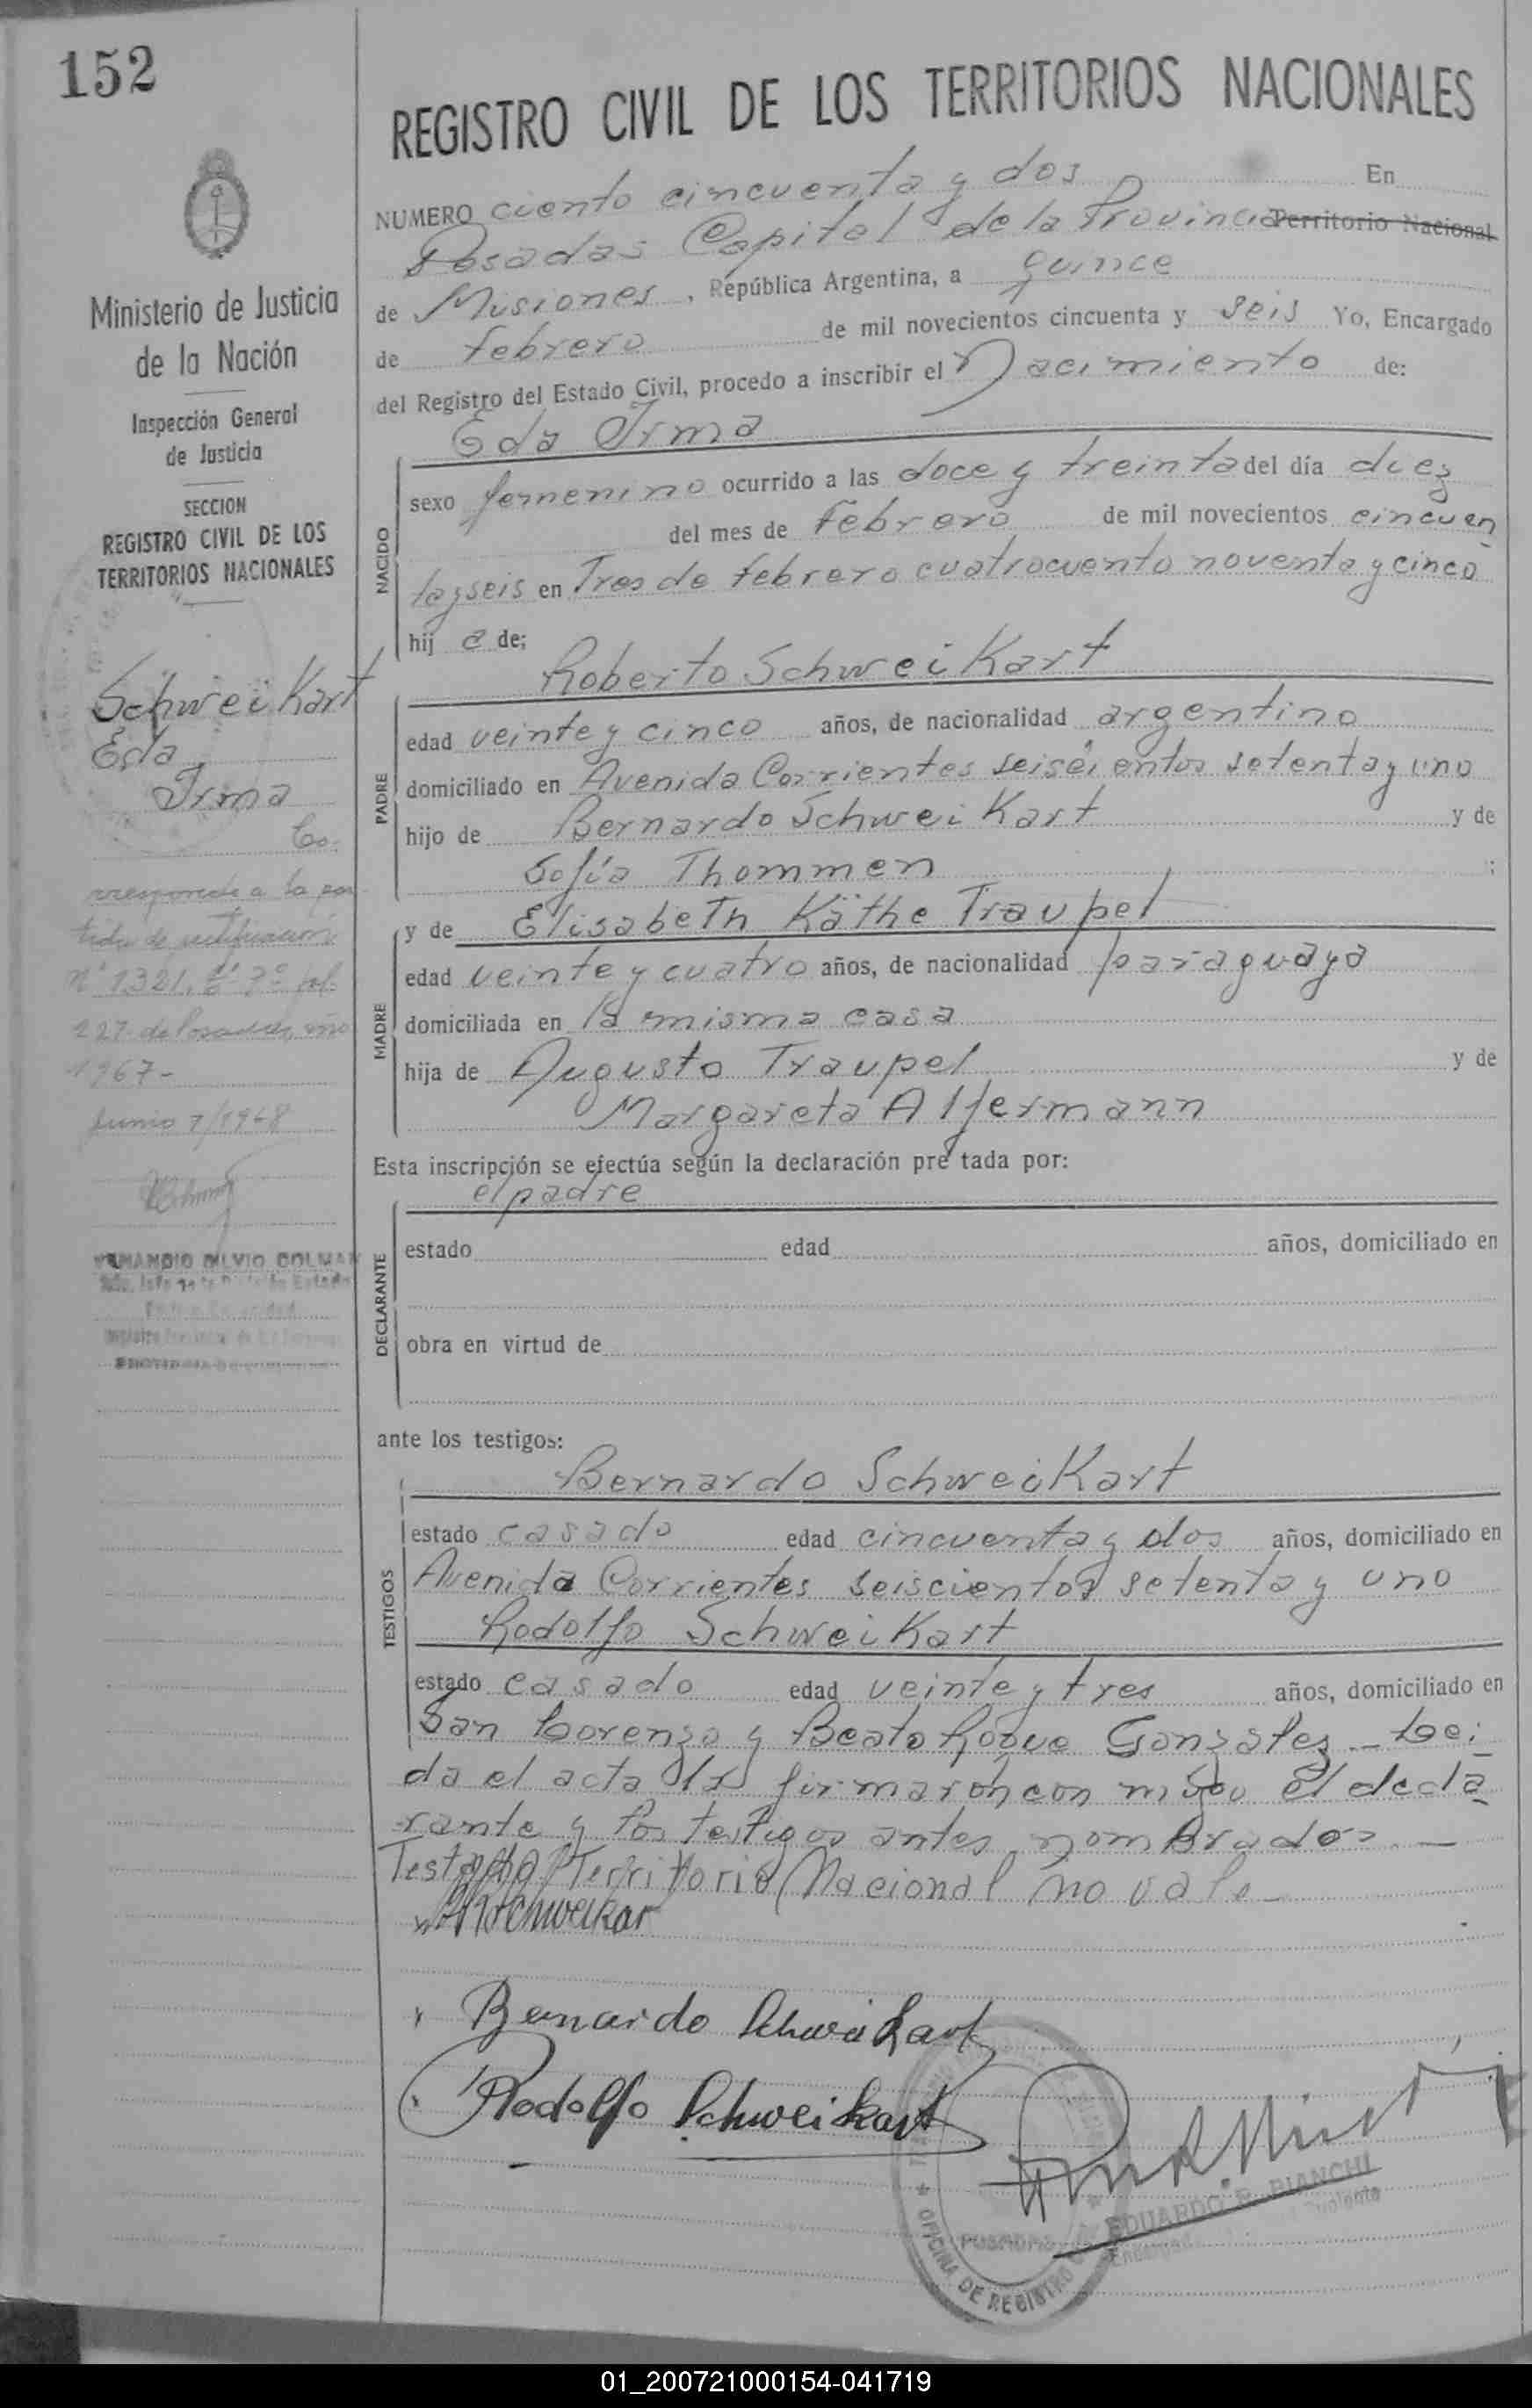 152
REGISTRO CIVIL DE LOS TERRITORIOS NACIONALES
NUMERO ciento cincuenta y dos En
Posadas Capital de la Provincia Territorio Nacional
de Misiones, República Argentina, a quince
de febrero de mil novecientos cincuenta y seis Yo, Encargado
del Registro del Estado Civil, procedo a inscribir el Nacimiento de:
Eda Irma
NACIDO
sexo femenino ocurrido a las doce y treinta del día diez
del mes de Febrero de mil novecientos cincuen
ta y seis en Tres de febrero cuatrociento noventa y cinco
hij a de;
Roberto Schweikart
PADRE
edad veinte y cinco años, de nacionalidad argentino
domiciliado en Avenida Corrientes seiscientos setenta y uno
hijo de Bernardo Schweikart y de
Sofía Thommen ;
y de Elisabeth Käthe Traupel
MADRE
edad veinte y cuatro años, de nacionalidad paraguaya
domiciliada en la misma casa
hija de Augusto Traupel y de
Margareta Alfermann
Esta inscripción se efectúa según la declaración pre tada por:
el padre
DECLARANTE
estado edad años, domiciliado en
obra en virtud de
ante los testigos:
Bernardo Schweikart
TESTIGOS
estado casado edad cincuenta y dos años, domiciliado en
Avenida Corrientes seiscientos setenta y uno
Rodolfo Schweikart
estado casado edad veinte y tres años, domiciliado en
San Lorenzo y Beato Roque Gonzalez - Lei
da el acta la firmaron con migo el decla
rante y los testigos antes nombrados. —
Testado Territorio Nacional no vale
Schweikar
Bernardo Schweikart
Rodolfo Schweikart
EDUARDO R. BIANCHI
POSADAS
OFICINA DE REGISTRO
Ministerio de Justicia
de la Nación
Inspección General
de Justicia
SECCION
REGISTRO CIVIL DE LOS
TERRITORIOS NACIONALES
Schweikart
Eda
Irma
Co
rresponde a la par
tida de rectificación
n° 1321, tº 7º fol.
127 de Posadas, año
1967-
Junio 7/1968
SILVIO COLMAN
01_200721000154-041719